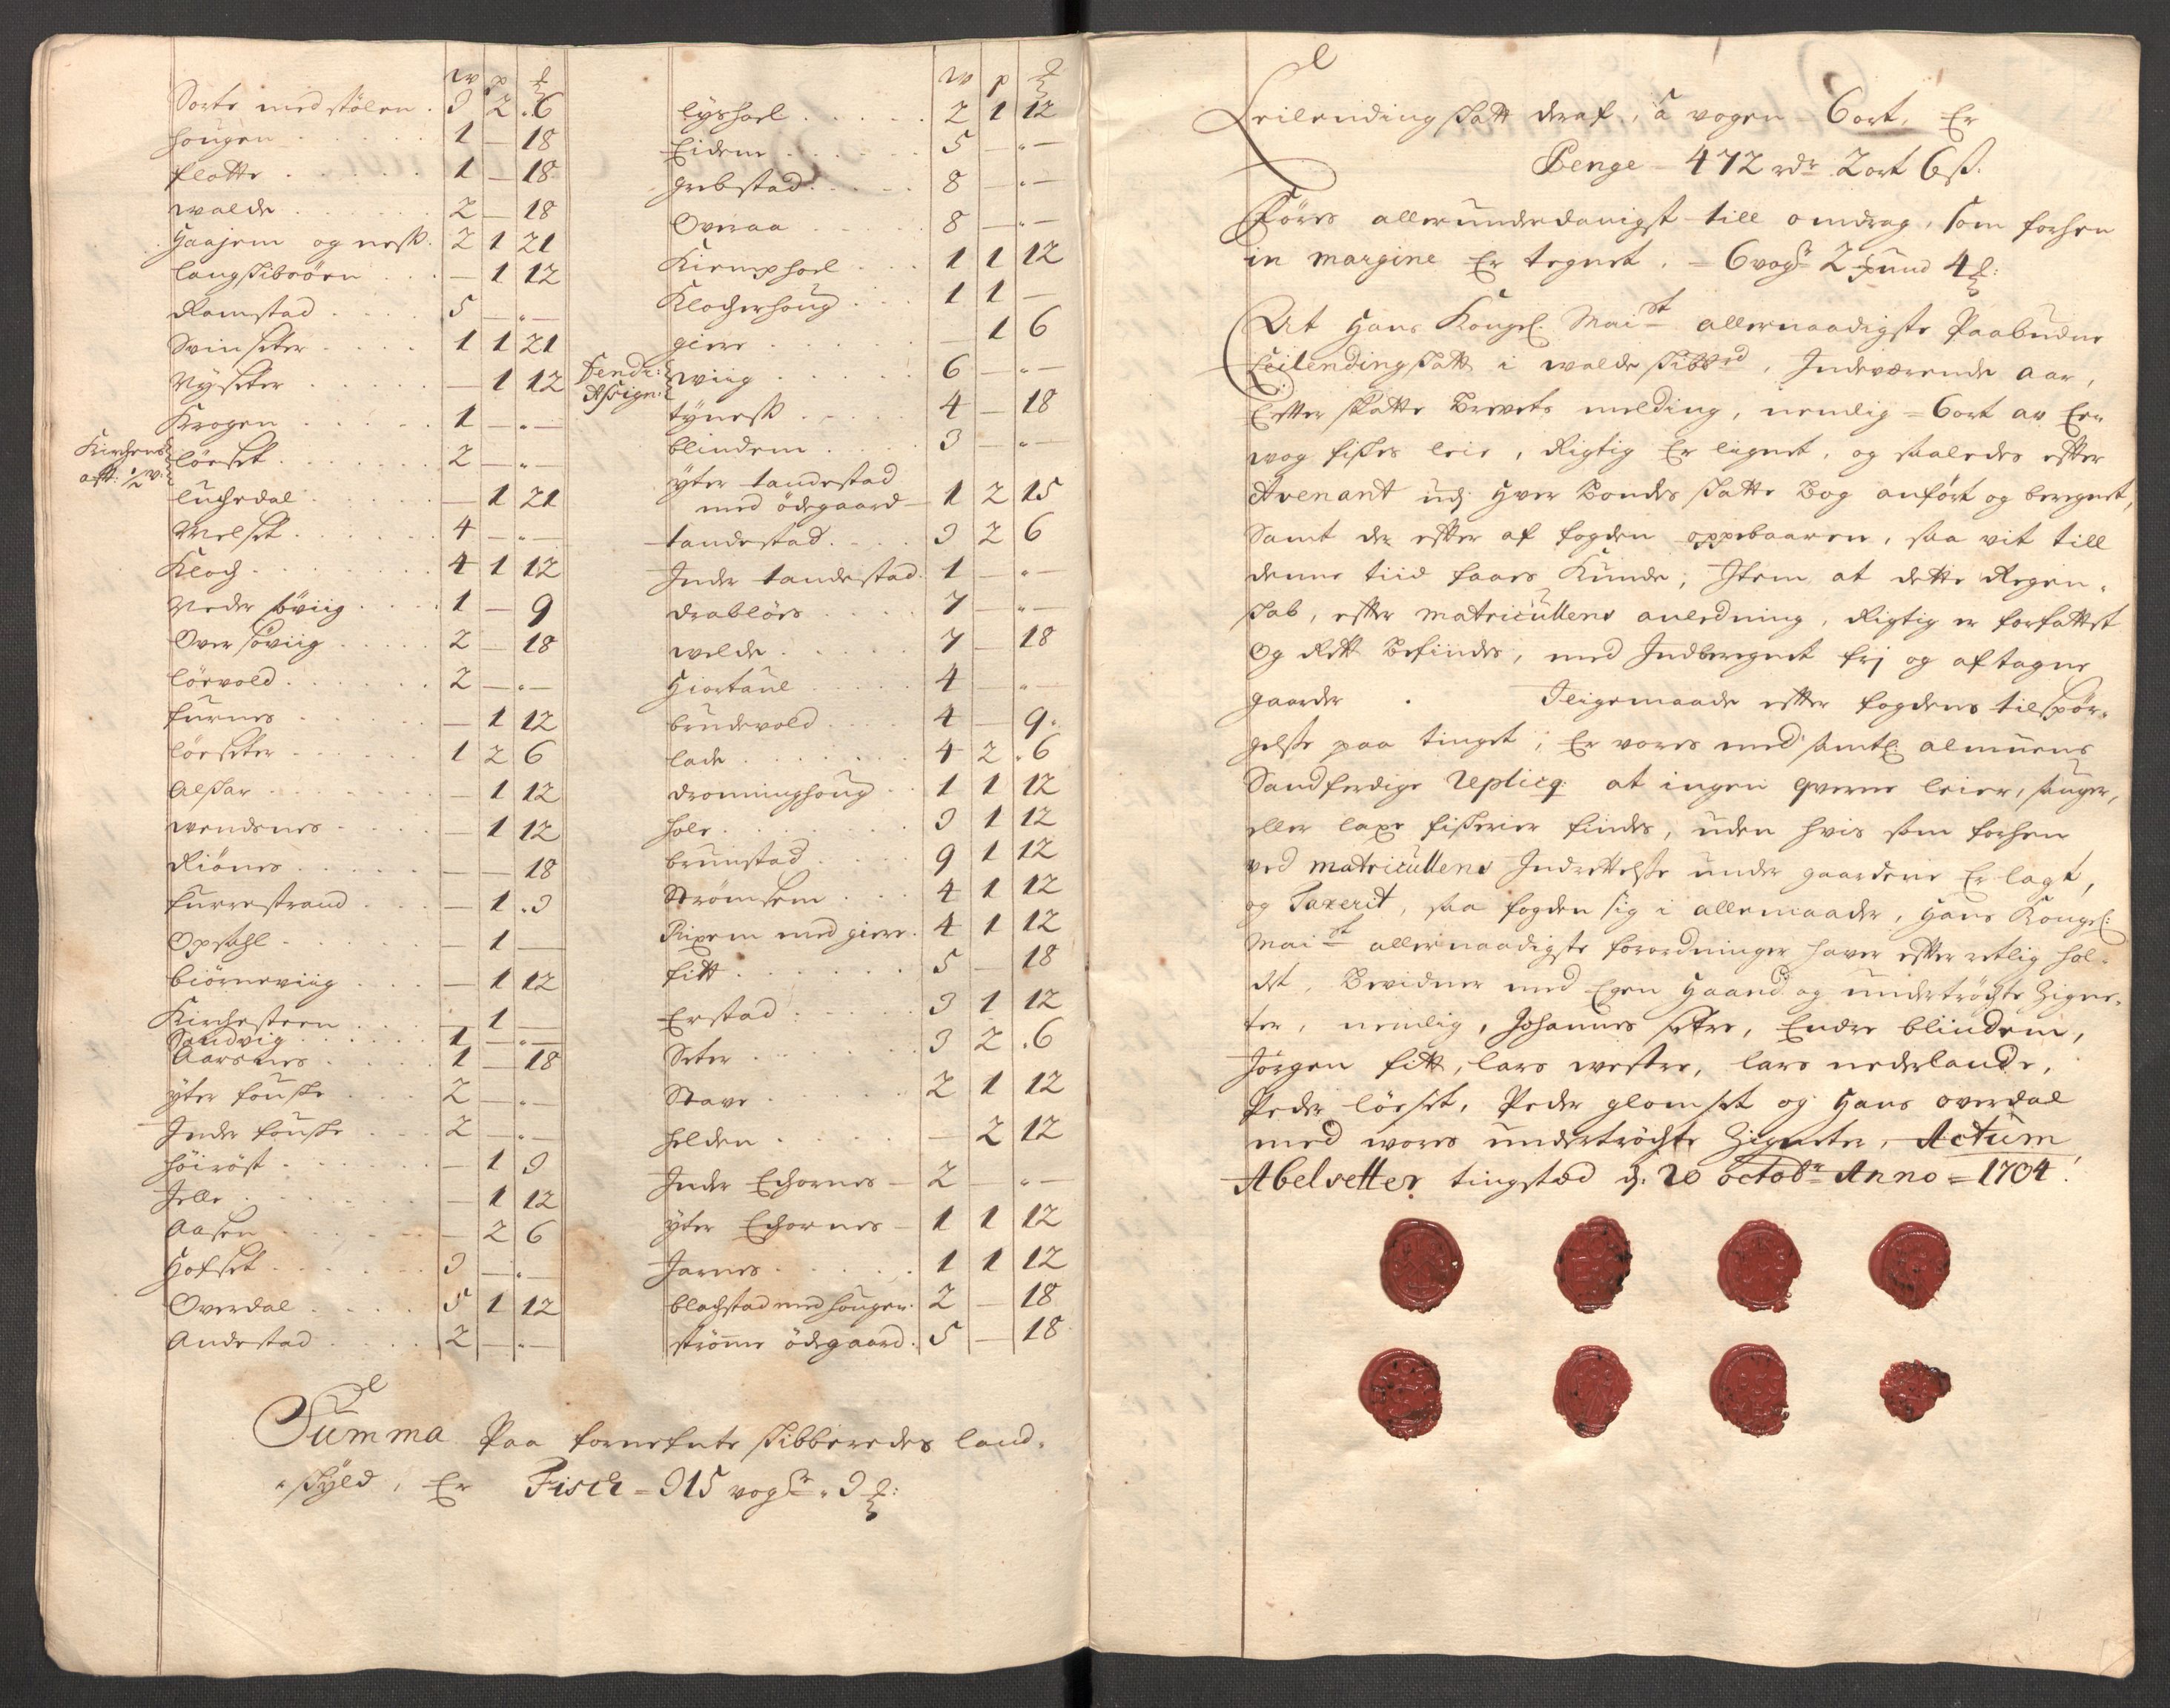 w p ℔
Sorte med stölen . 3 2 . 6
Hougen . . . 1 – 18
Flotte . . . 1 – 18
Walde . . . 2 – 18
Haajem og ness . 2 1 21
Langskibsöen . . . – 1 12
Ramstad . . . 5 – . –
Svinseter . . . 1 1 21
Nyseter . . . – 1 12
Krogen . . . 1 – . –
Kirchens
aff: ½ w:
Löeset . . . 2 – . –
Luchedal . . . – 1 21
Melset . . . 4 – . –
Kloch . . . 4 1 12
Neder söviig . . . 1 – 9
Over söviig . . . 2 – 18
Löevold . . . 2 – . –
Furnes . . . – 1 12
Löeseter . . . 1 2 6
Alskar . . . – 1 12
Wendsnes . . . – 1 12
Riönes . . . – – 18
Furrestrand . . . – 1 . 3
Opsahl . . . – 1 –
Biörneviig . . . – 1 12
Kirchesteen . . . – 1 –
Sandvig . . . 1 – . –
Aarsnes . . . 1 – 18
Yter fouske . . . 2 – . –
Inder fouske . . . 2 – . –
Höiröst . . . – 1 3
Jelle . . . – 1 12
Aasen . . . – 2 6
Hofset . . . 3 – . –
Overdal . . . 5 1 12
Andestad . . . 2 – . –
w p ℔
Lyshoel . . . 2 1 12
Eidem . . . 5 – . –
Grebstad . . . 8 – . –
Overaa . . . 8 – . –
Kiemphoel . . . 1 1 12
Klocherhoug . . . 1 1 –
Giere . . . – 1 6
Bendt:
Assign:
Wiig . . . 6 – . –
Tyness . . . 4 – 18
Blindem . . . 3 – . –
Yter tandestad
med ödegaard – 1 2 15
Tandestad . . . 3 2 6
Inder tandestad . 1 – . –
Drablös . . . 7 – . –
Welde . . . 7 – 18
Hiortaul . . . 4 – . –
Brudevold . . . 4 – 9 .
Lade . . . 4 2 . 6
Dronninghoug . . 1 1 12
Hole . . . 3 1 12
Brunstad . . . 9 1 12
Strömhem . . . 4 1 12
Rixem med giere . 4 1 12
Fitt . . . 5 – 18
Erstad . . . 3 1 12
Seter . . . 3 2 . 6
Stave . . . 2 1 12
Helden . . . – 2 12
Inder Echornes – 2 – . –
Yter Echornes – 1 1 12
Jarnes . . . 1 1 12
Blachstad med hougen . 2 – 18
Strömme ödegaard . 5 – 18
Summa Paa fornefnte skibberedes land-
skyld, Er Fisch = 315 vogr . 3 ℔:
Leilending skatt deraf, â vogen 6 ort, Er
Penge – 472 rdr 2 ort 6 s.
Föres allerunderdanigst till omdrag, som forhen
in margine Er tegnet, = 6 vogr 2 pund 4 ℔:
At Hans Kongel. Maist allernaadigste Paabudne
Leilending skatt i walde skibbrd, Indeværende aar,
Efter skatte Brevets melding, nemlig = 6 ort av Een
wog fiskes leie, Rigtig Er lignet, og saaledes efter
Avenant udj Hver Bondes skatte Bog anfört og beregnet,
Samt der efter af fogden oppebaaren, saa vit till
denne tiid faaes Kunde; Item at dette Regen-
skab, efter matricullens anledning, Rigtig er forfattet
Og Rett Befindes, med Indberegnet frj og aftagne
gaarder . Iligemaade efter fogdens tilspör-
gelse paa tinget, Er vores med samtl: almuens
Sandferdige Replicq: at ingen qverne leier, sauger,
eller laxe fiskerier findes, uden hvis som forhen
ved matricullens Indrettelse under gaardene Er lagt,
og Taxerit, saa fogden sig i allemaader, Hans Kongel:
Maist allernaadigste forordninger haver efterretlig hol-
det, Bevidner med Egen Haand og undertröchte Zigne-
ter, nemlig, Johannes sætre, Endre blindem,
Jörgen fitt, Lars westre, Lars nederlande,
Peder löeset, Peder glomset og Hans overdal
med wores undertröchte Zigneter, Actum
Abelsetter tingsted d: 20 octobr Anno = 1704.